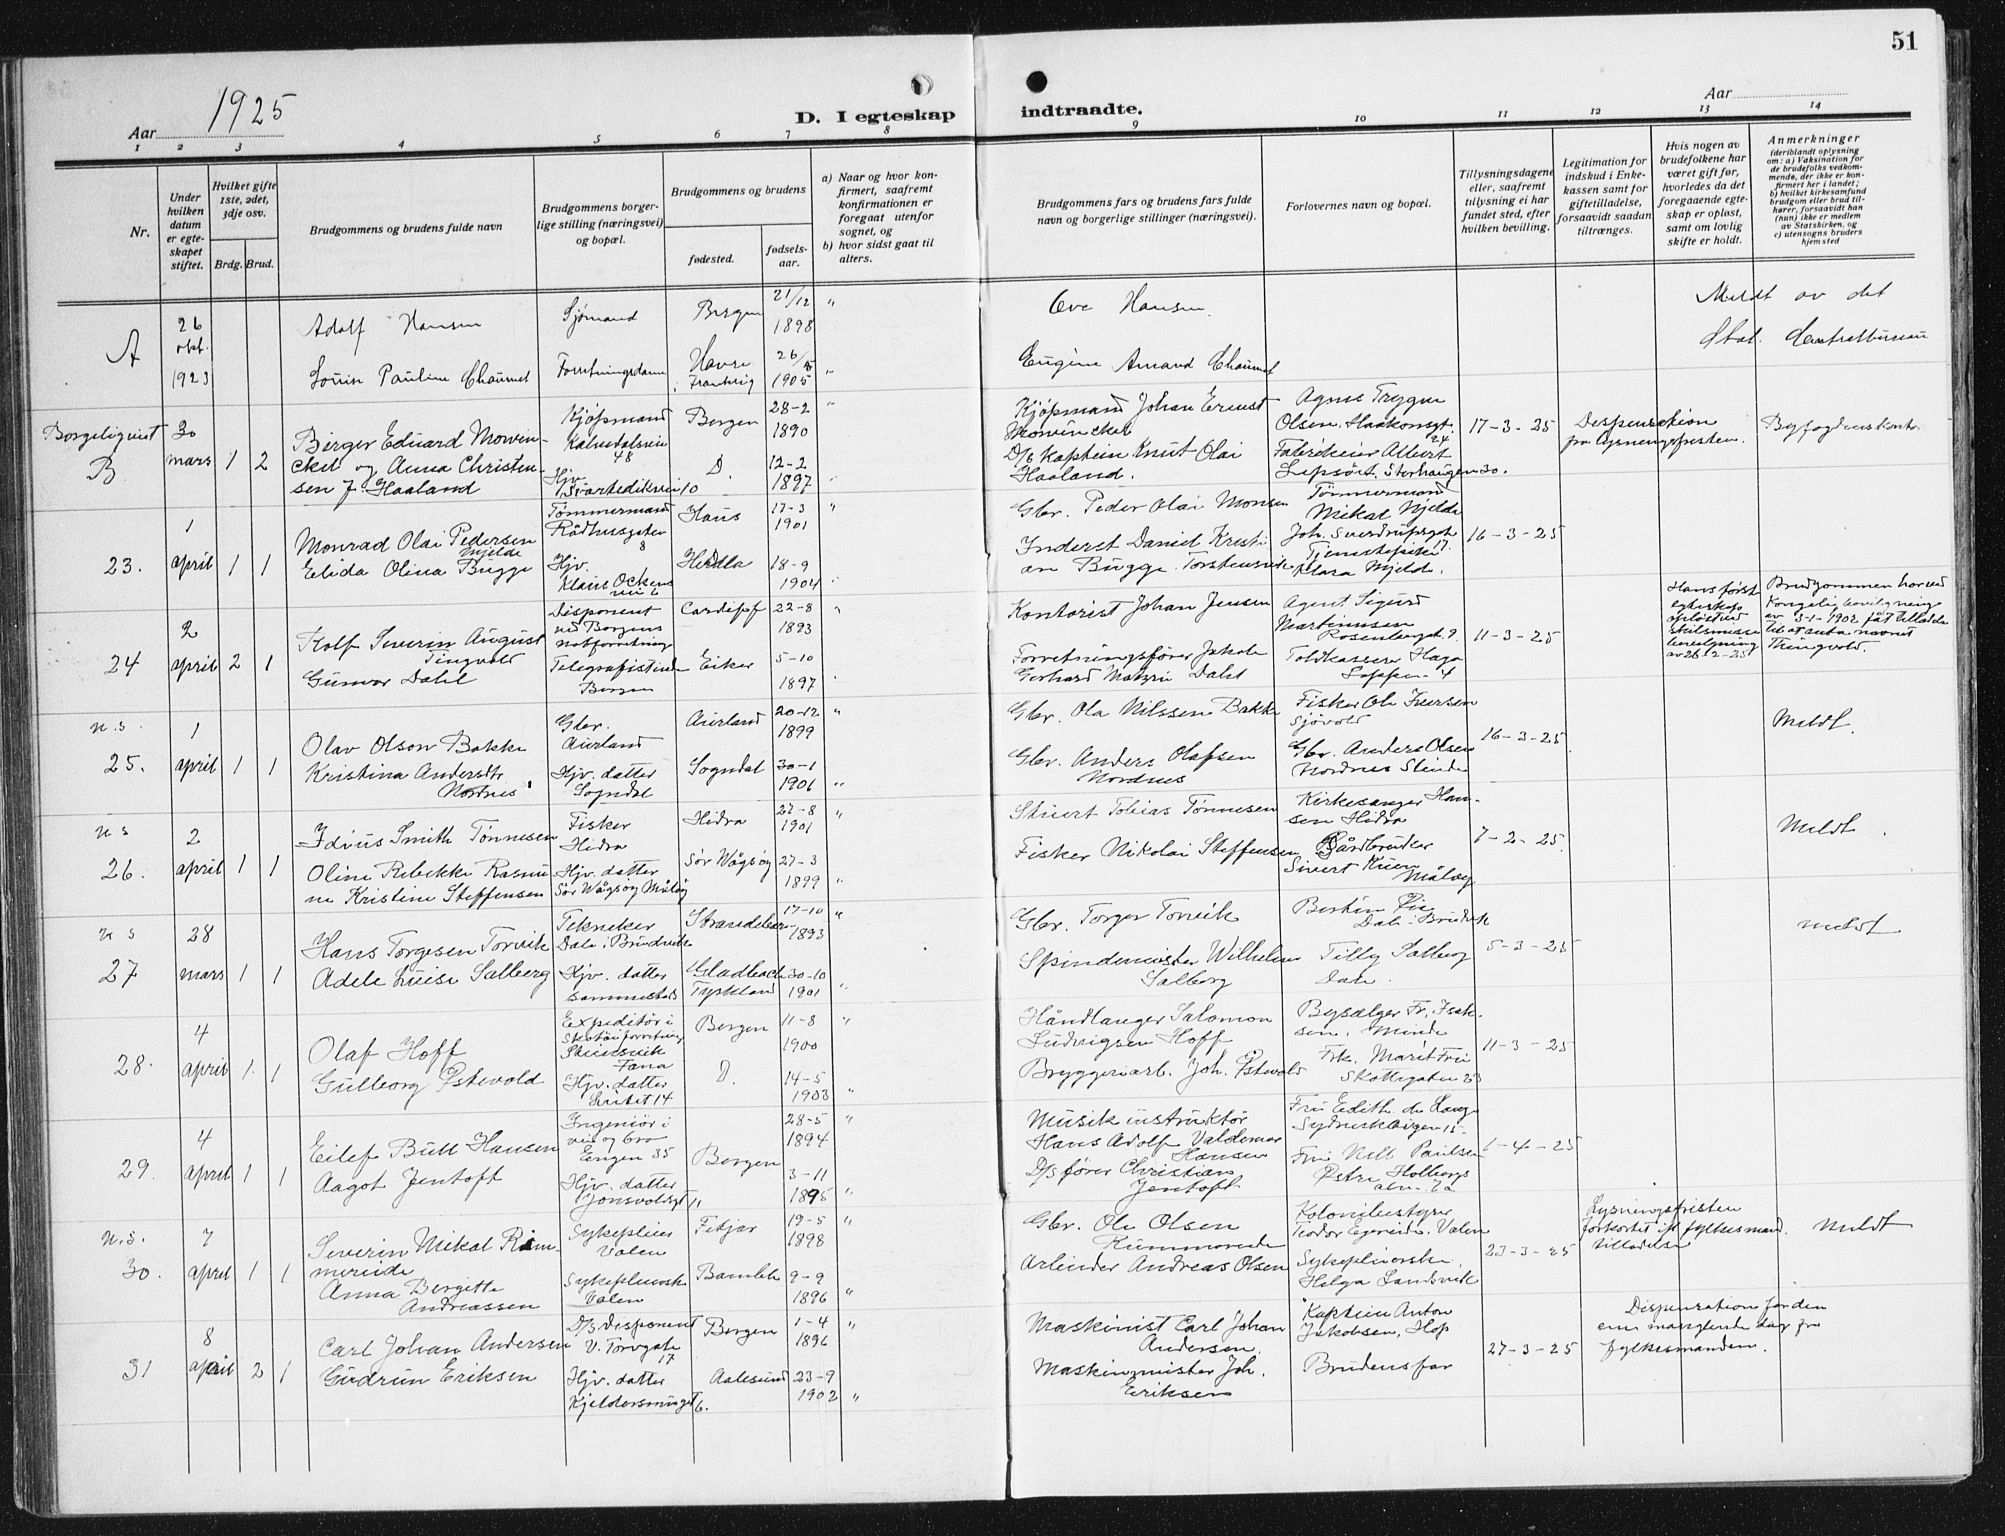 51
Aar 1925
D. I egteskap indtraadte.
Aar
1 2 3 4 5 6 7 8 9 10 11 12 13 14
Nr.
Under hvilken datum er egteskapet stiftet.
Hvilket gifte 1ste, 2det, 3dje osv.
Brdg. Brud.
Brudgommens og brudens fulde navn
Brudgommens borgerlige stilling (næringsvei) og bopæl.
Brudgommens og brudens
fødested.
fødselsaar.
a) Naar og hvor konfirmert, saafremt konfirmationen er foregaat utenfor sognet, og
b) hvor sidst gaat til alters.
Brudgommens fars og brudens fars fulde navn og borgerlige stillinger (næringsvei).
Forlovernes navn og bopæl.
Tillysningsdagene eller, saafremt tillysning ei har fundet sted, efter hvilken bevilling.
Legitimation for indskud i Enkekassen samt for giftetilladelse, forsaavidt saadan tiltrænges.
Hvis nogen av brudefolkene har været gift før, hvorledes da det foregaaende egteskap er opløst, samt om lovlig skifte er holdt.
Anmerkninger
(deriblandt oplysning om: a) Vaksination for de brudefolks vedkommende, der ikke er konfirmert her i landet; b) hvilket kirkesamfund brudgom eller brud tilhører, forsaavidt han (hun) ikke er medlem av Statskirken, og c) utensogns bruders hjemsted
A 26 okt. 1923
Adolf Hansen Sjømand Bergen 21/12 1898 " Ove Hansen. Meldt av det
Stat. Centralbureau
Louise Pauline Chaumet Forretningsdame Havre Frankrig 26/5 1905 " Eugène Amand Chaumet
Borgerlig viet
B 30 mars 1 2
Birger Eduard Mowinckel og Anna Christensen f. Haaland
Kjøpmand Kalvedalsvei 48 Bergen 28-2 1890 "
Hjv. Svartediksvei 10 D 12-2 1897 "
Kjøpmand Johan Ernst Mowinckel
D/s Kaptein Knut Olai Haaland.
Agnes Trygve Olsen, Haakonsgt. 24
Fabrikeier Albert Lepsøe, Storhaugen 30.
17-3-25 Dispensation fra lysningsfristen. Byfogdens kontr.
23. 1 april 1 1
Monrad Olai Pedersen Mjelde
Elida Olina Bugge
Tømmermand Rådhusgaten 8 Haus 17-3 1901 "
Hjv. Klaus Ockens Herdla 18-9 1904 "
Gbr. Peder Olai Monsen
Inderst Daniel Kristian Bugge. Torstensvik
Tømmermand Mikal Mjelde Joh. Sverdrupsgt. 17.
Tjenestepike Klara Mjelde.
16-3-25
24 2 april 2 1
Rolf Severin August Tingvold
Gunvor Dahl
Disponent ved Bergens notforretning Cardiff 22-8 1893 "
Telegrafistinde Bergen Eiker 5-10 1897 "
Kontorist Johan Jensen
Forretningsfører Jakob Gerhard Matzri Dahl
Agent Sigurd Martinusen Rosenbergsgt. 9.
Toldkasserer Haga
11-3-25
Hans første egteskap opløst ved skilsmissebevilgning av 26-2-25
Brudgommen har ved Kongelig bevilgning av 3-1-1902 fåt tilladelse til at anta navnet Thingvold.
u.s. 25. 1 april 1 1
Olav Olson Bakke
Kristina Andersdtr. Nordnes
Gbr. Aurland Aurland 20-12 1899 "
Hjv. datter Sogndal Sogndal 30-1 1901 "
Gbr. Ola Nilssen Bakke
Gbr. Anders Olafsen Nordnes
Fisker Ole Iversen Sjøvold
Gbr. Anders Olsen Nordnes Slinde
16-3-25. Meldt.
u s 26. 2 april 1 1
Idius Smith Tønnesen
Oline Rebekka Rasmine Kristine Steffensen
Fisker Hidra Hidra 27-8 1901 "
Hjv. datter Sør Vågsøy Måløy Sør Wågsøy 27-3 1899 "
Sivert Tobias Tønnesen
Fisker Nikolai Steffensen
Kirkesanger Hansen Hidra
Gårdbruker Sivert Kvien Måløy
7-2-25. Meldt.
u s 27 28 mars 1 1
Hans Torgersen Torvik
Adele Luise Salberg
Tekniker Dale i Bruvik Strandebarm 17-10 1893 "
Hjv. datter sammesteds Gladbach Tyskland 30-10 1901 "
Gbr. Torger Torvik
Spindemester Wilhelm Salberg
Dale i Bruvik
Tilly Salberg Dale.
5-3-25 meldt
28. 4 april 1. 1
Olaf Hoff
Gulborg Østevold
Expeditør i skotøiforretning Fana Bergen 11-8 1900 "
Hjv. datter 14 D. 14-5 1903 "
Håndlanger Salomon Ludvigsen Hoff
Bryggeriarb. Joh. Østevold
Bysælger Fr. Isaksen, Minde
Frk. Marit Frii Skottegaten 23
11-3-25
29. 4 april 1 1
Eilef Bull Hansen
Aagot Jentoft
Ingeniør i vei og bro Engen 35 Bergen 28-5 1894 "
Hjv. datter Jonsvoldsgt. 11 3-11 1895 "
Musik instruktør Hans Adolf Valdemar Hansen
D/s fører Christian Jentoft
Fru Edith de Lange Sydneskaugen 15.
Fru Nell Paulsen Østre Holbergs alm. 7a
6-4-25
u.s. 30. 7 april 1 1
Severin Mikal Rømmereide
Anna Bergette Andreassen
Sykepleier Valen Fitjar 19-5 1898 "
Sykepleierske Valen Bamble 9-9 1896 "
Gbr. Ole Olsen Rummereide
Arbeider Andreas Olsen
Kolonibestyrer Teodor Egereide, Valen
Sykepleierske Helga Sandvik
23-3-25 Lysningsfristen forkortet ifl. fylkesmand. tilladelse Meldt
31 8 april 2 1
Carl Johan Andersen
Gudrun Eriksen
D/S Disponent V. Torvgate 17 Bergen 1-4 1896 "
Hjv. datter Kjeldersmuget 6. Aalesund 23-9 1902 "
Maskinist Carl Johan Andersen.
Maskinmester Joh. Eriksen
Kaptein Anton Jakobsen, Hop
Brudens far
27-3-25 Dispensation for den ene manglende dag fra fylkesmanden.